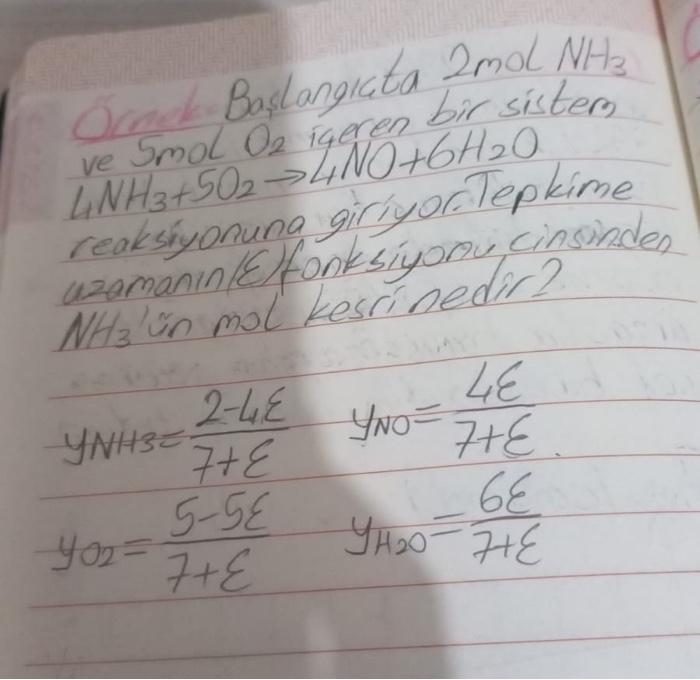 Örnek: Başlangıçta 2mol NH3
ve 5mol O2 içeren bir sistem
4NH3+5O2→4NO+6H2O
reaksiyonuna giriyor. Tepkime
uzamanın(ε) fonksiyonu cinsinden
NH3'ün mol kesri nedir?
yNH3=2-4ε/7+ε yNO=4ε/7+ε
yO2=5-5ε/7+ε yH2O=6ε/7+ε